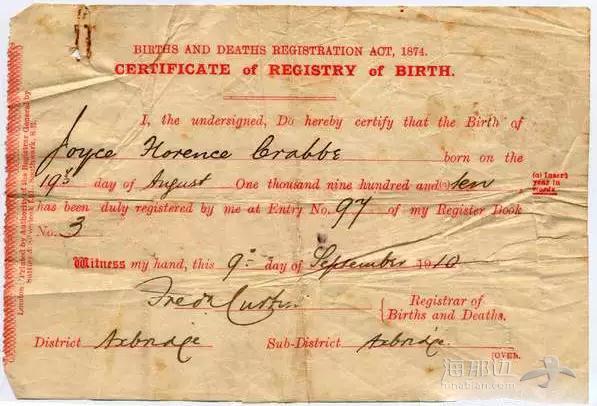 BIRTHS AND DEATHS REGISTRATION ACT, 1874.
CERTIFICATE of REGISTRY of BIRTH.
I, the undersigned, Do hereby certify that the Birth of
Joyce Florence Crabbe born on the
19th day of August One thousand nine hundred and (a) ten
(a) Insert
year in
words.
has been duly registered by me at Entry No. 97 of my Register Book
No. 3
Witness my hand, this 9th day of September 1910
Fredk Curtis
Registrar of
Births and Deaths.
District Axbridge Sub-District Axbridge
[OVER.
London: Printed by Authority of the Registrar General by
海那边
hinabian.com